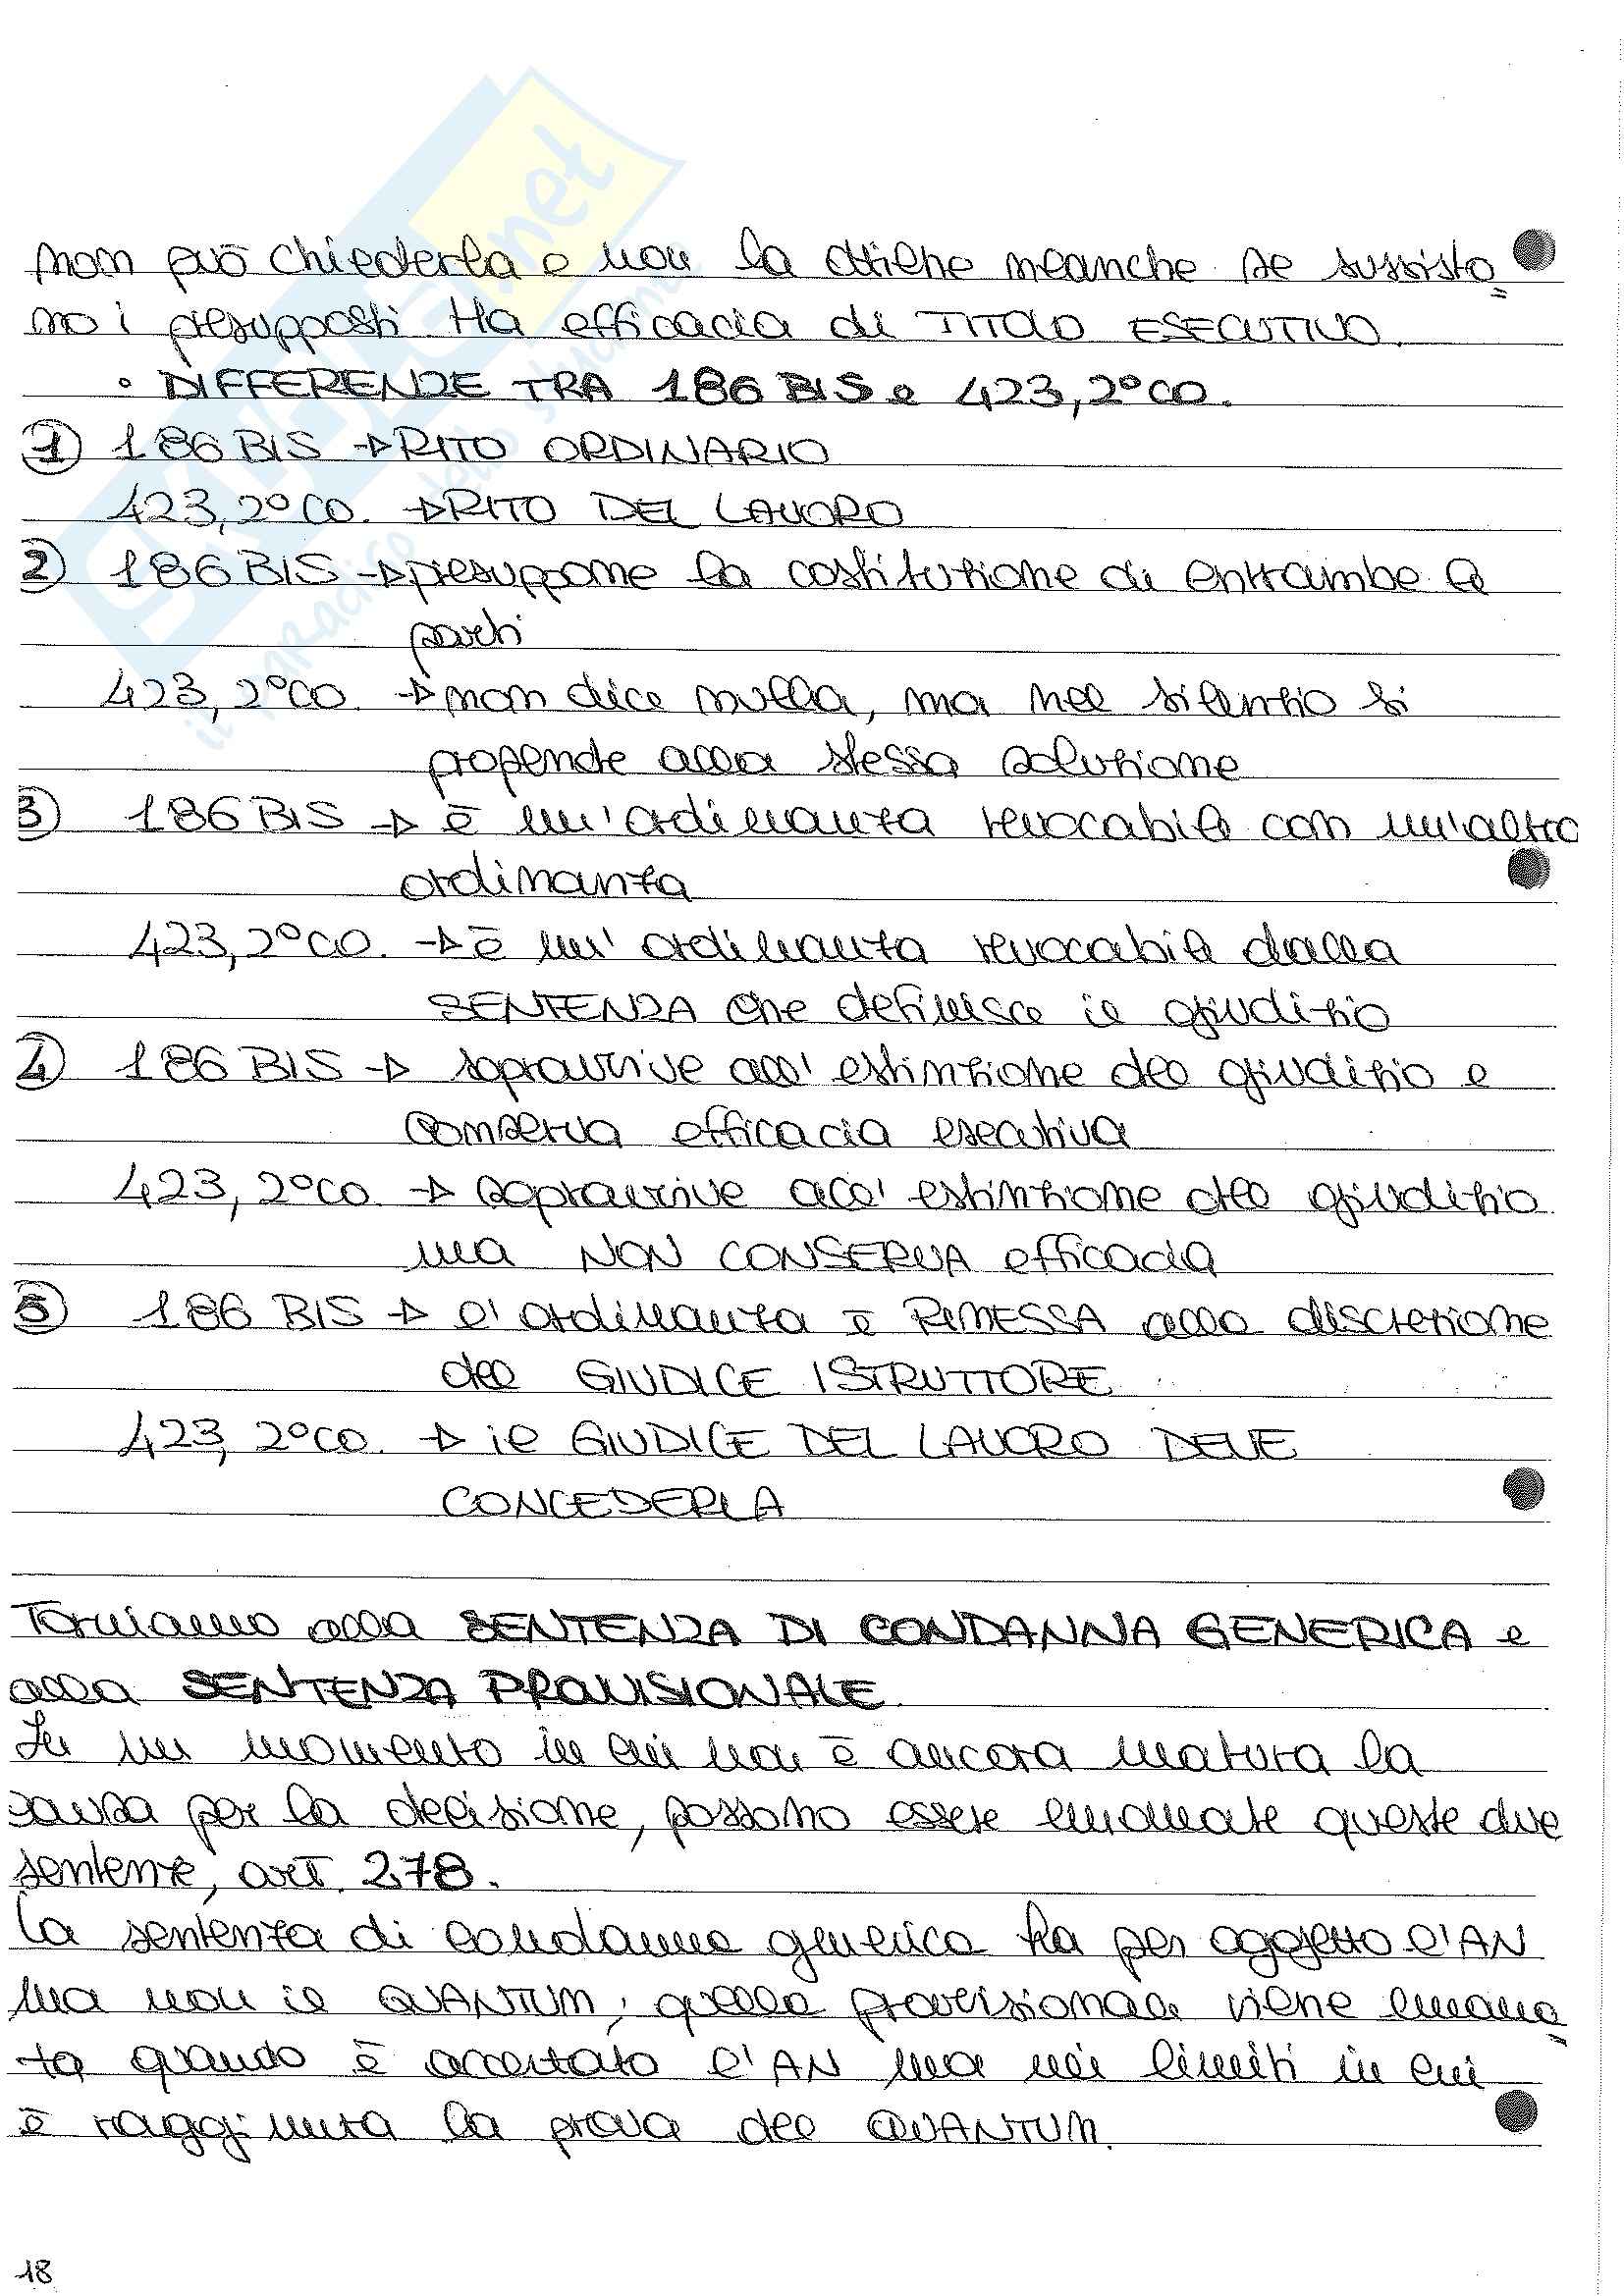 non può chiederla e non la ottiene neanche se sussisto=
no i presupposti. Ha efficacia di TITOLO ESECUTIVO.
° DIFFERENZE TRA 186 BIS e 423, 2° CO.
1 186 BIS → RITO ORDINARIO
423, 2° CO. → RITO DEL LAVORO
2 186 BIS → presuppone la costituzione di entrambe le
parti
423, 2° CO. → non dice nulla, ma nel silenzio si
propende alla stessa soluzione
3 186 BIS → è un'ordinanza revocabile con un'altra
ordinanza
423, 2° CO. → è un'ordinanza revocabile dalla
SENTENZA che definisce il giudizio
4 186 BIS → sopravvive all'estinzione del giudizio e
conserva efficacia esecutiva
423, 2° CO. → sopravvive all'estinzione del giudizio
ma NON CONSERVA efficacia
5 186 BIS → l'ordinanza è RIMESSA alla discrezione
del GIUDICE ISTRUTTORE
423, 2° CO. → il GIUDICE DEL LAVORO DEVE
CONCEDERLA
Torniamo alla SENTENZA DI CONDANNA GENERICA e
alla SENTENZA PROVVISIONALE.
In un momento in cui non è ancora matura la
causa per la decisione, possono essere emanate queste due
sentenze, art. 278.
La sentenza di condanna generica ha per oggetto l'AN
ma non il QUANTUM, quella provvisionale viene emana=
ta quando è accertato l'AN ma nei limiti in cui
è raggiunta la prova del QUANTUM.
18